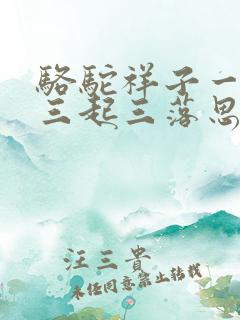 駱駝祥子一
三起三落思
汪三貴
未經同意禁止轉載